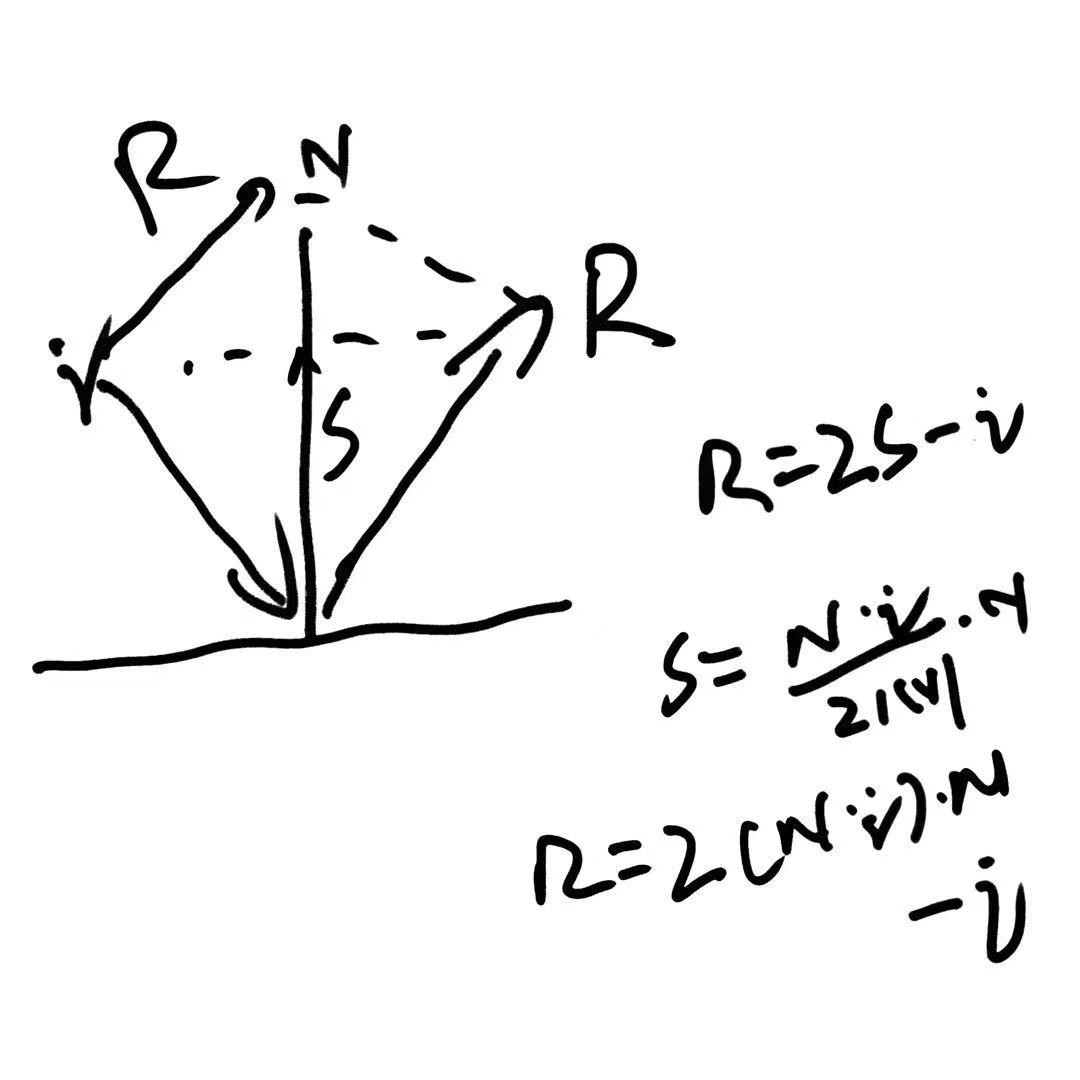 R N
R
i
S
R=2S-i
S= N·i/2|N| ·N
R=2(N·i)·N
-i